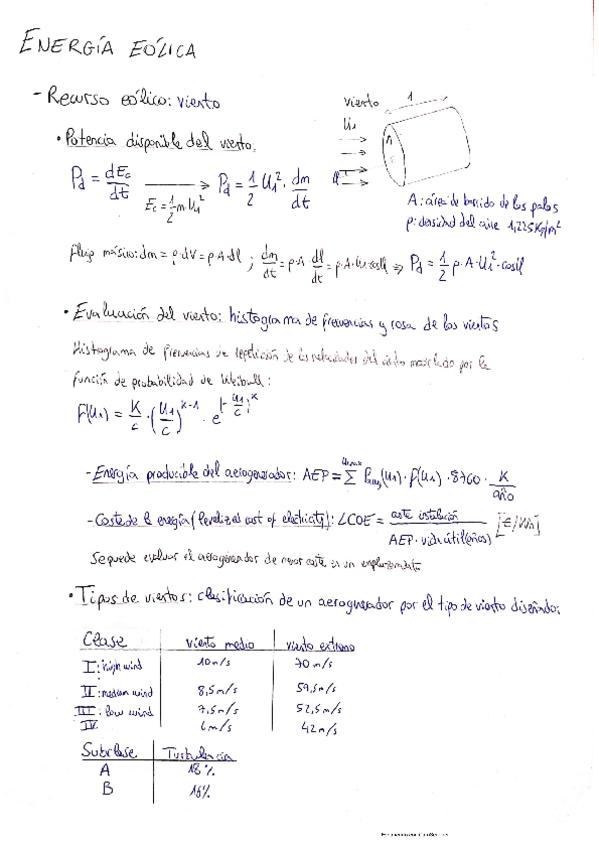 ENERGÍA EÓLICA
- Recurso eólico: viento
• Potencia disponible del viento:
viento
U₁
1
A
Pd = dEc/dt → Ec = 1/2 m·U₁² → Pd = 1/2 U₁² · dm/dt
A: área de barrido de las palas
ρ: densidad del aire 1,225 Kg/m²
Flujo másico: dm = ρ·dV = ρ·A·dl ; dm/dt = ρ·A dl/dt = ρ·A·U₁·cosφ ⇒ Pd = 1/2 ρ·A·U₁²·cosφ
• Evaluación del viento: histograma de frecuencias y rosa de los vientos
Histograma de frecuencias de repetición de las velocidades del viento modelado por la
función de probabilidad de Weibull:
f(u₁) = K/c · (u₁/c)^(K-1) · e^(-u₁/c)^K
- Energía producible del aerogenerador: AEP = Σ (u₁)·f(u₁)·8760 · K/año
- Coste de la energía (levelized cost of electricity): LCOE = coste instalación / AEP · vida útil (años) [€/Wh]
Se puede evaluar el aerogenerador de menor coste en un emplazamiento
• Tipos de vientos: clasificación de un aerogenerador por el tipo de viento diseñado:
Clase viento medio viento extremo
I: high wind 10 m/s 70 m/s
II: median wind 8,5 m/s 59,5 m/s
III: low wind 7,5 m/s 52,5 m/s
IV 6 m/s 42 m/s
Subclase Turbulencia
A 18%
B 16%